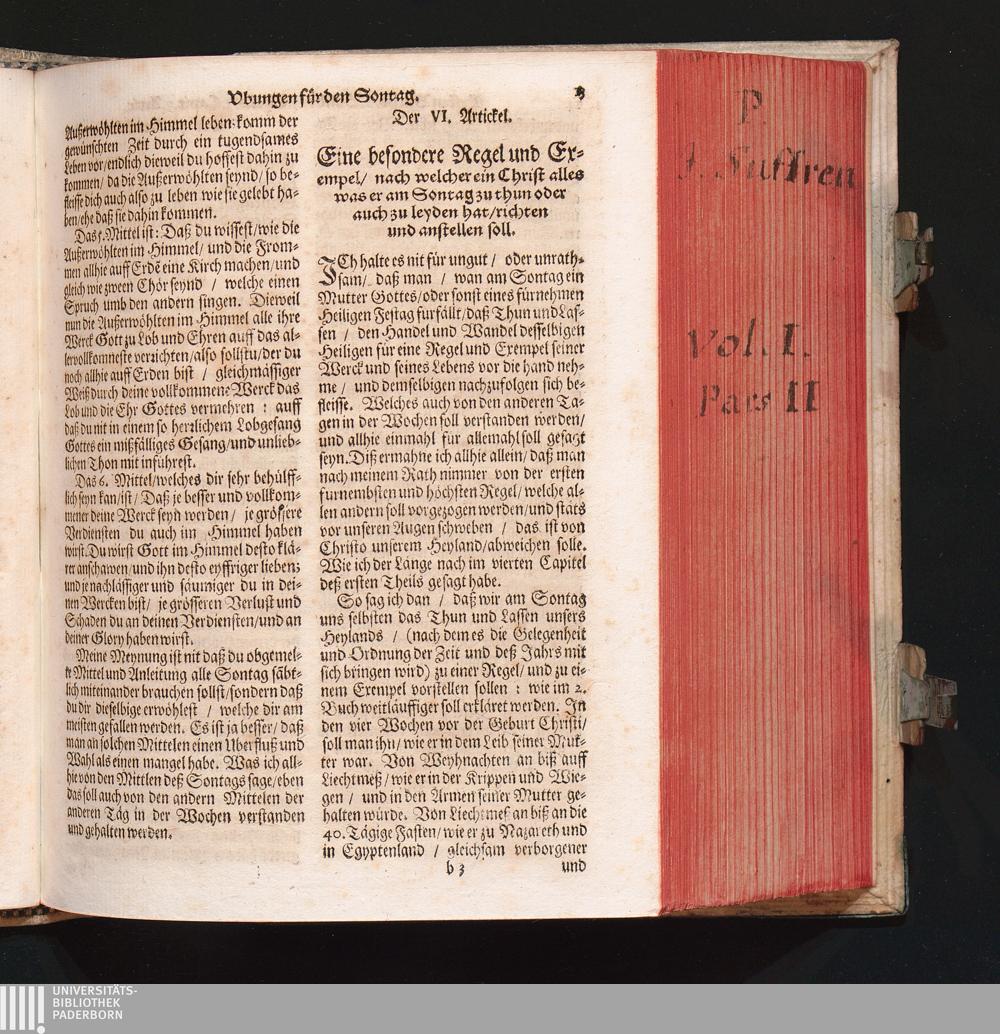 Vbungen für den Sontag. 13
Außerwöhlten im Himmel leben: komm der
gewünschten Zeit durch ein tugendsames
Leben vor/ endlich dieweil du hoffest dahin zu
kommen/ da die Außerwöhlten seynd/ so be-
fleisse dich auch also zu leben wie sie gelebt ha-
ben/ ehe daß sie dahin kommen.
Das 5. Mittel ist: Daß du wissest/ wie die
Außerwöhlten im Himmel/ und die From-
men allhie auff Erdẽ eine Kirch machen/ und
gleich wie zween Chör seynd / welche einen
Spruch umb den andern singen. Dieweil
nun die Außerwöhlten im Himmel alle ihre
Werck Gott zu Lob und Ehren auff das al-
lervollkomneste verzichten/ also sollstu/ der du
noch allhie auff Erden bist / gleichmässiger
Weiß durch deine vollkommene Werck das
Lob und die Ehr Gottes vermehren : auff
daß du nit in einem so herzlichem Lobgesang
Gottes ein mißfälliges Gesang/ und unlieb-
lichen Thon mit inführest.
Das 6. Mittel/ welches dir sehr behülff-
lich seyn kan/ ist/ Daß je besser und vollkom-
mener deine Werck seyn werden / je grössere
Verdiensten du auch im Himmel haben
wirst. Du wirst Gott im Himmel desto klä-
rer anschawen/ und ihn desto eyffriger lieben;
und je nachlässiger und säumiger du in dei-
nen Wercken bist/ je grösseren Verlust und
Schaden du an deinen Verdiensten/ und an
deiner Glory haben wirst.
Meine Meynung ist nit daß du obgemel-
te Mittel und Anleitung alle Sontag säbt-
lich miteinander brauchen sollst/ sondern daß
du dir dieselbige erwöhlest / welche dir am
meisten gefallen werden. Es ist ja besser/ daß
man an solchen Mittelen einen Uberfluß und
Wahl als einen mangel habe. Was ich all-
hie von den Mittlen deß Sontags sage/ eben
das soll auch von den andern Mittelen der
anderen Täg in der Wochen verstanden
und gehalten werden.
Der VI. Artickel.
Eine besondere Regel und Ex-
empel/ nach welcher ein Christ alles
was er am Sontag zu thun oder
auch zu leyden hat/ richten
und anstellen soll.
ICh halte es nit für ungut / oder unrath-
sam/ daß man / wan am Sontag ein
Mutter Gottes/ oder sonst eines fürnehmen
Heiligen Festag fürfällt/ daß Thun und Las-
sen / den Handel und Wandel desselbigen
Heiligen für eine Regel und Exempel seiner
Werck und seines Lebens vor die hand neh-
me / und demselbigen nachzufolgen sich be-
fleisse. Welches auch von den anderen Ta-
gen in der Wochen soll verstanden werden/
und allhie einmahl für allemahl soll gesagt
seyn. Diß ermahne ich allhie allein/ daß man
nach meinem Rath nimmer von der ersten
furnembsten und höchsten Regel/ welche al-
len andern soll vorgezogen werden/ und stäts
vor unseren Augen schweben / das ist von
Christo unserem Heyland/ abweichen solle.
Wie ich der Länge nach im vierten Capitel
deß ersten Theils gesagt habe.
So sag ich dan / daß wir am Sontag
uns selbsten das Thun und Lassen unsers
Heylands / (nach dem es die Gelegenheit
und Ordnung der Zeit und deß Jahrs mit
sich bringen wird) zu einer Regel/ und zu ei-
nem Exempel vorstellen sollen : wie im 2.
Buch weitläuffiger soll erkläret werden. In
den vier Wochen vor der Geburt Christi/
soll man ihn/ wie er in dem Leib seiner Mut-
ter war. Von Weyhnachten an biß auff
Liechtmeß/ wie er in der Krippen und Wie-
gen / und in den Armen seiner Mutter ge-
halten würde. Von Liechtmeß an biß an die
40. Tägige Fasten/ wie er zu Nazareth und
in Egyptenland / gleichsam verborgener
b 3 und
P.
J. Suffren
Vol. I.
Pars II
UNIVERSITÄTS-
BIBLIOTHEK
PADERBORN